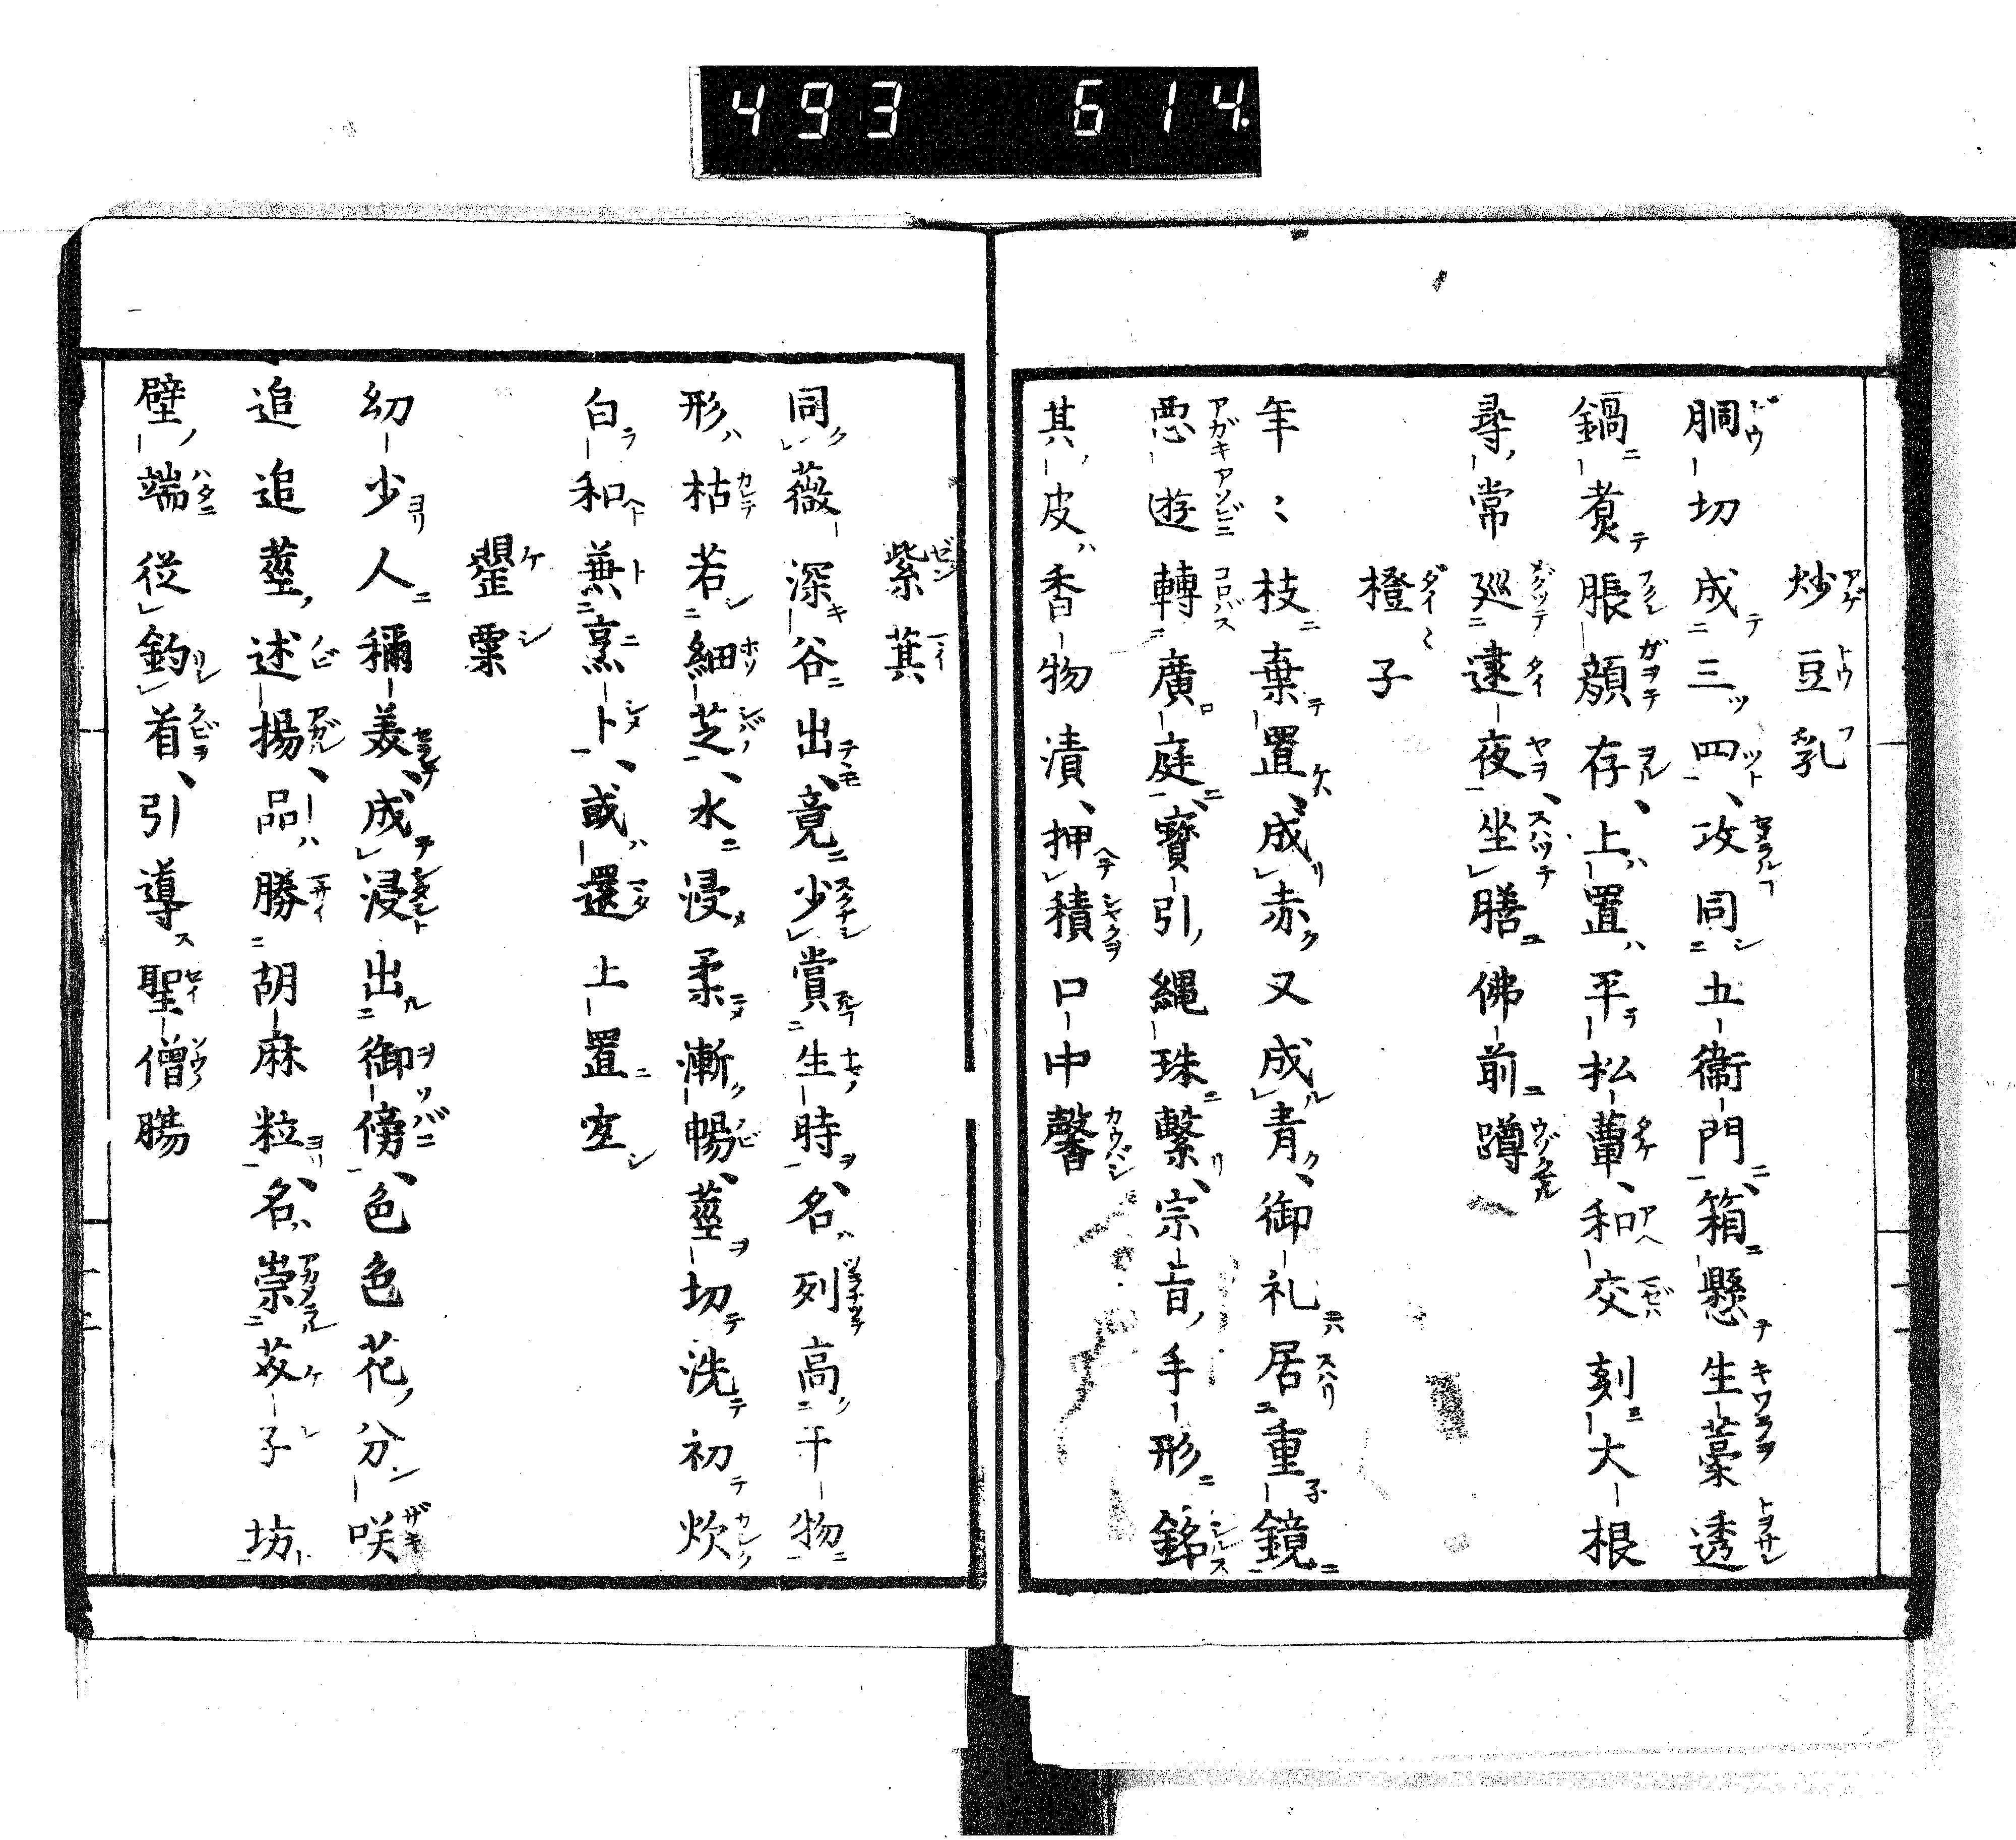 493 614
炒豆乳
胴切成三四、攻同五衞門、箱懸生藁透
鍋煮脹顔存、上置平松蕈、和交刻大根
尋常廵逮夜、坐膳佛前蹲
橙子
年〻枝棄置、成赤又成青、御礼居重鏡
悪遊轉廣庭、寳引縄珠繋、宗旨手形銘
其皮香物漬、押積口中馨
紫萁
同薇深谷出、竟少賞生時、名列高干物
形枯若細芝、水浸柔漸暢、莖切洗初炊
白和兼烹卜、或還上置宜
罌粟
幼少人稱美、成浸出御傍、色色花分咲
追追莖述揚、品勝胡麻粒、名崇芥子坊
壁端従釣首、引導聖僧腸